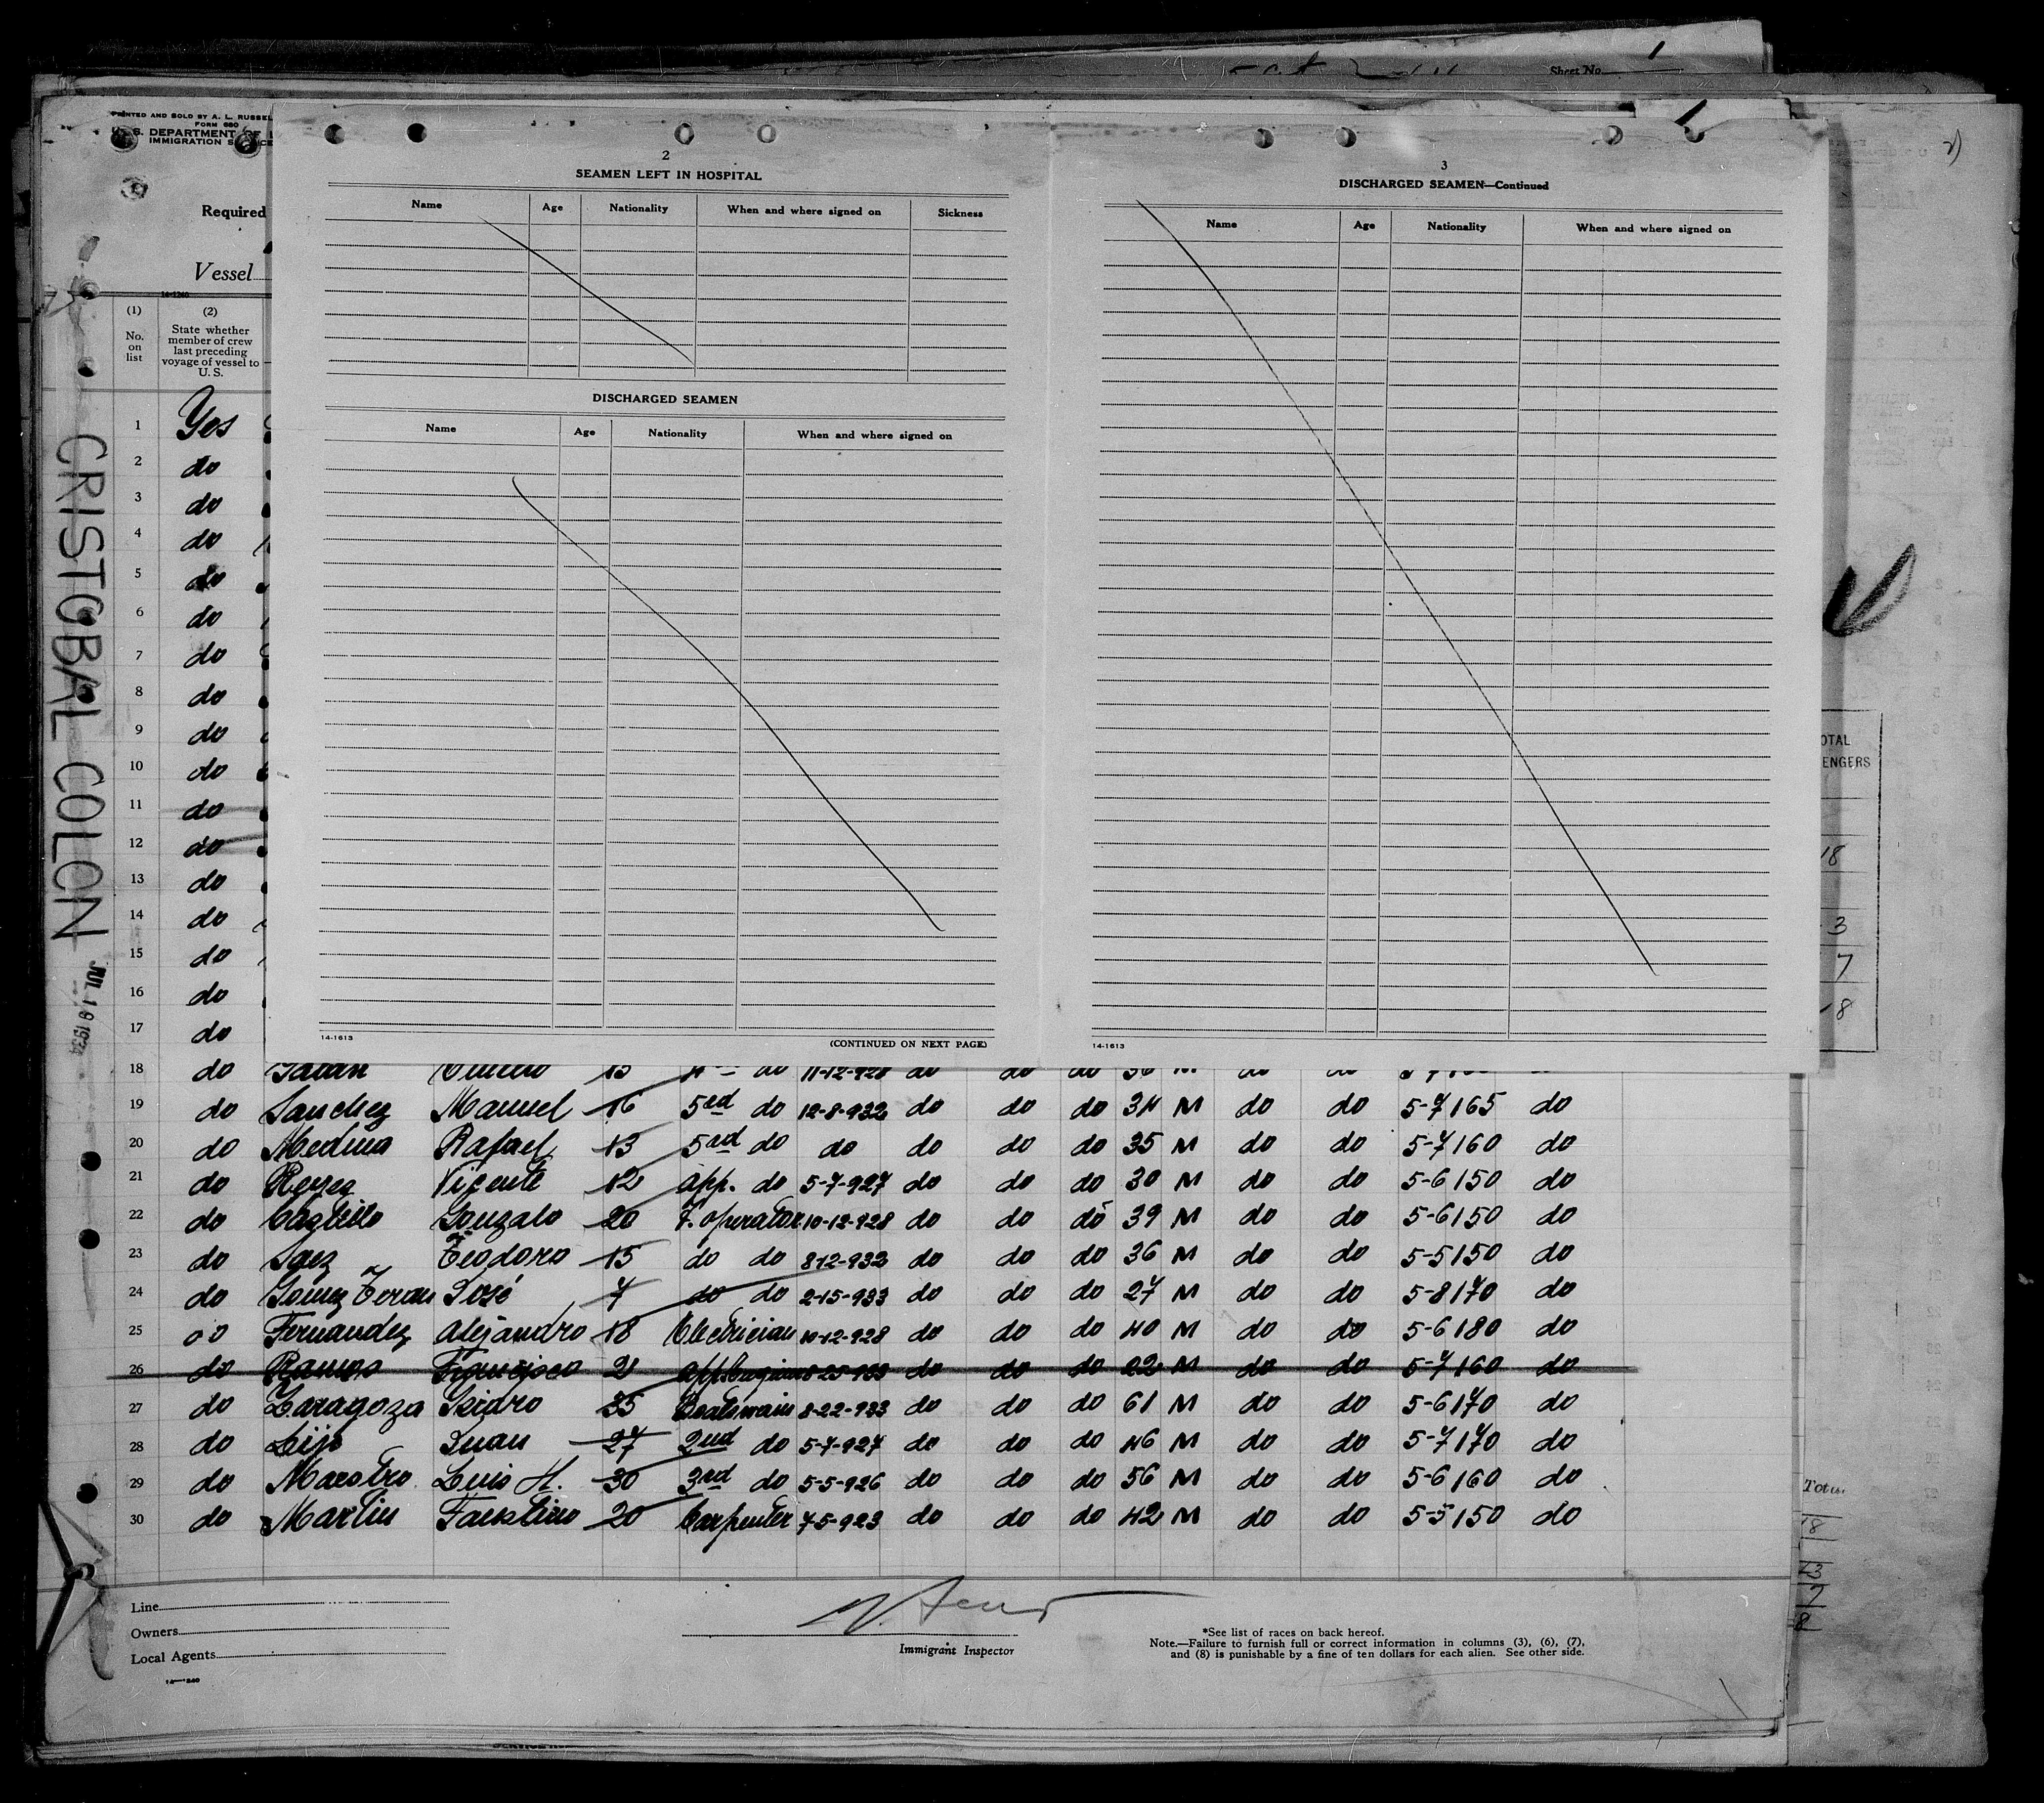 Sheet No. 1
PRINTED AND SOLD BY A. L. RUSSEL
FORM 680
U. S. DEPARTMENT OF L
IMMIGRATION SERVICE
Required
Vessel
14-1240
(1) (2)
No. on list
State whether member of crew last preceding voyage of vessel to U. S.
CRISTOBAL COLON
JUL 19 1934
2
SEAMEN LEFT IN HOSPITAL
Name Age Nationality When and where signed on Sickness
DISCHARGED SEAMEN
Name Age Nationality When and where signed on
14-1613
(CONTINUED ON NEXT PAGE)
3
DISCHARGED SEAMEN—Continued
Name Age Nationality When and where signed on
14-1613
OTAL
ENGERS
18
3
7
8
1 Yes
2 do
3 do
4 do
5 do
6 do
7 do
8 do
9 do
10 do
11 do
12 do
13 do
14 do
15 do
16 do
17 do
18 do 15 do 11-12-928 do do do 36 M do do
19 do Sanchez Manuel 16 5ed do 12-8-932 do do do 34 M do do 5-7 165 do
20 do Medina Rafael 13 5ed do do do do do 35 M do do 5-7 160 do
21 do Reyes Vicente 12 app. do 5-7-927 do do do 30 M do do 5-6 150 do
22 do Castillo Gonzalo 20 F. operator 10-12-928 do do do 39 M do do 5-6 150 do
23 do Saez Teodoro 15 do do 8-12-932 do do do 36 M do do 5-5 150 do
24 do Gomez Teran José 7 do do 2-15-933 do do do 27 M do do 5-8 170 do
25 do Fernandez Alejandro 18 Electrician 10-12-928 do do do 40 M do do 5-6 180 do
26 do Ramos Francisco 2 8-25-933 do do do 22 M do do 5-7 160 do
27 do Zaragoza Isidro 35 Boatswain 8-22-933 do do do 61 M do do 5-6 170 do
28 do Juan 27 2nd do 5-7-927 do do do 46 M do do 5-7 170 do
29 do Maestro Luis H. 30 3rd do 5-5-926 do do do 56 M do do 5-6 160 do
30 do Martin Faustino 20 Carpenter 7-5-923 do do do 42 M do do 5-5 150 do
Total
18
13
7
8
Line
Owners
Local Agents
14-1240
Immigrant Inspector
*See list of races on back hereof.
Note.—Failure to furnish full or correct information in columns (3), (6), (7),
and (8) is punishable by a fine of ten dollars for each alien. See other side.